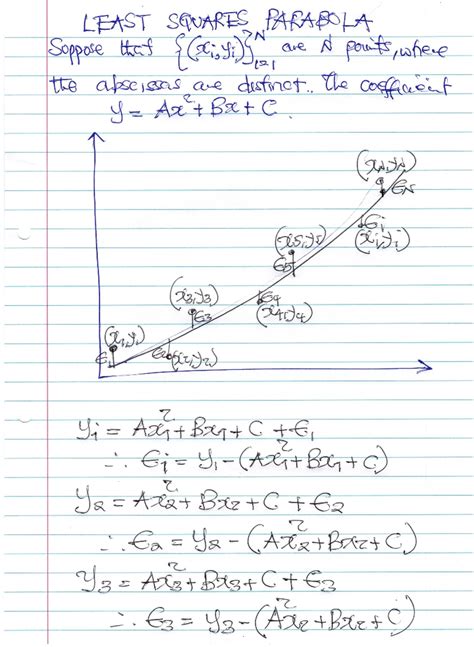 LEAST SQUARES PARABOLA
Suppose that {(xᵢ,yᵢ)}ᴺᵢ₌₁ are N points, where
the abscissas are distinct.. The coefficient
y = Ax² + Bx + C.
(xₙ,yₙ)
ϵₙ
ϵᵢ
(xᵢ,yᵢ)
(x₅,y₅)
ϵ₅
(x₃,y₃)
ϵ₃
ϵ₄
(x₄,y₄)
(x₁,y₁)
ϵ₁
ϵ₂
(x₂,y₂)
y₁ = Ax₁² + Bx₁ + C + ϵ₁
∴ ϵ₁ = y₁ - (Ax₁² + Bx₁ + C)
y₂ = Ax₂² + Bx₂ + C + ϵ₂
∴ ϵ₂ = y₂ - (Ax₂² + Bx₂ + C)
y₃ = Ax₃² + Bx₃ + C + ϵ₃
∴ ϵ₃ = y₃ - (Ax₂² + Bx₂ + C)